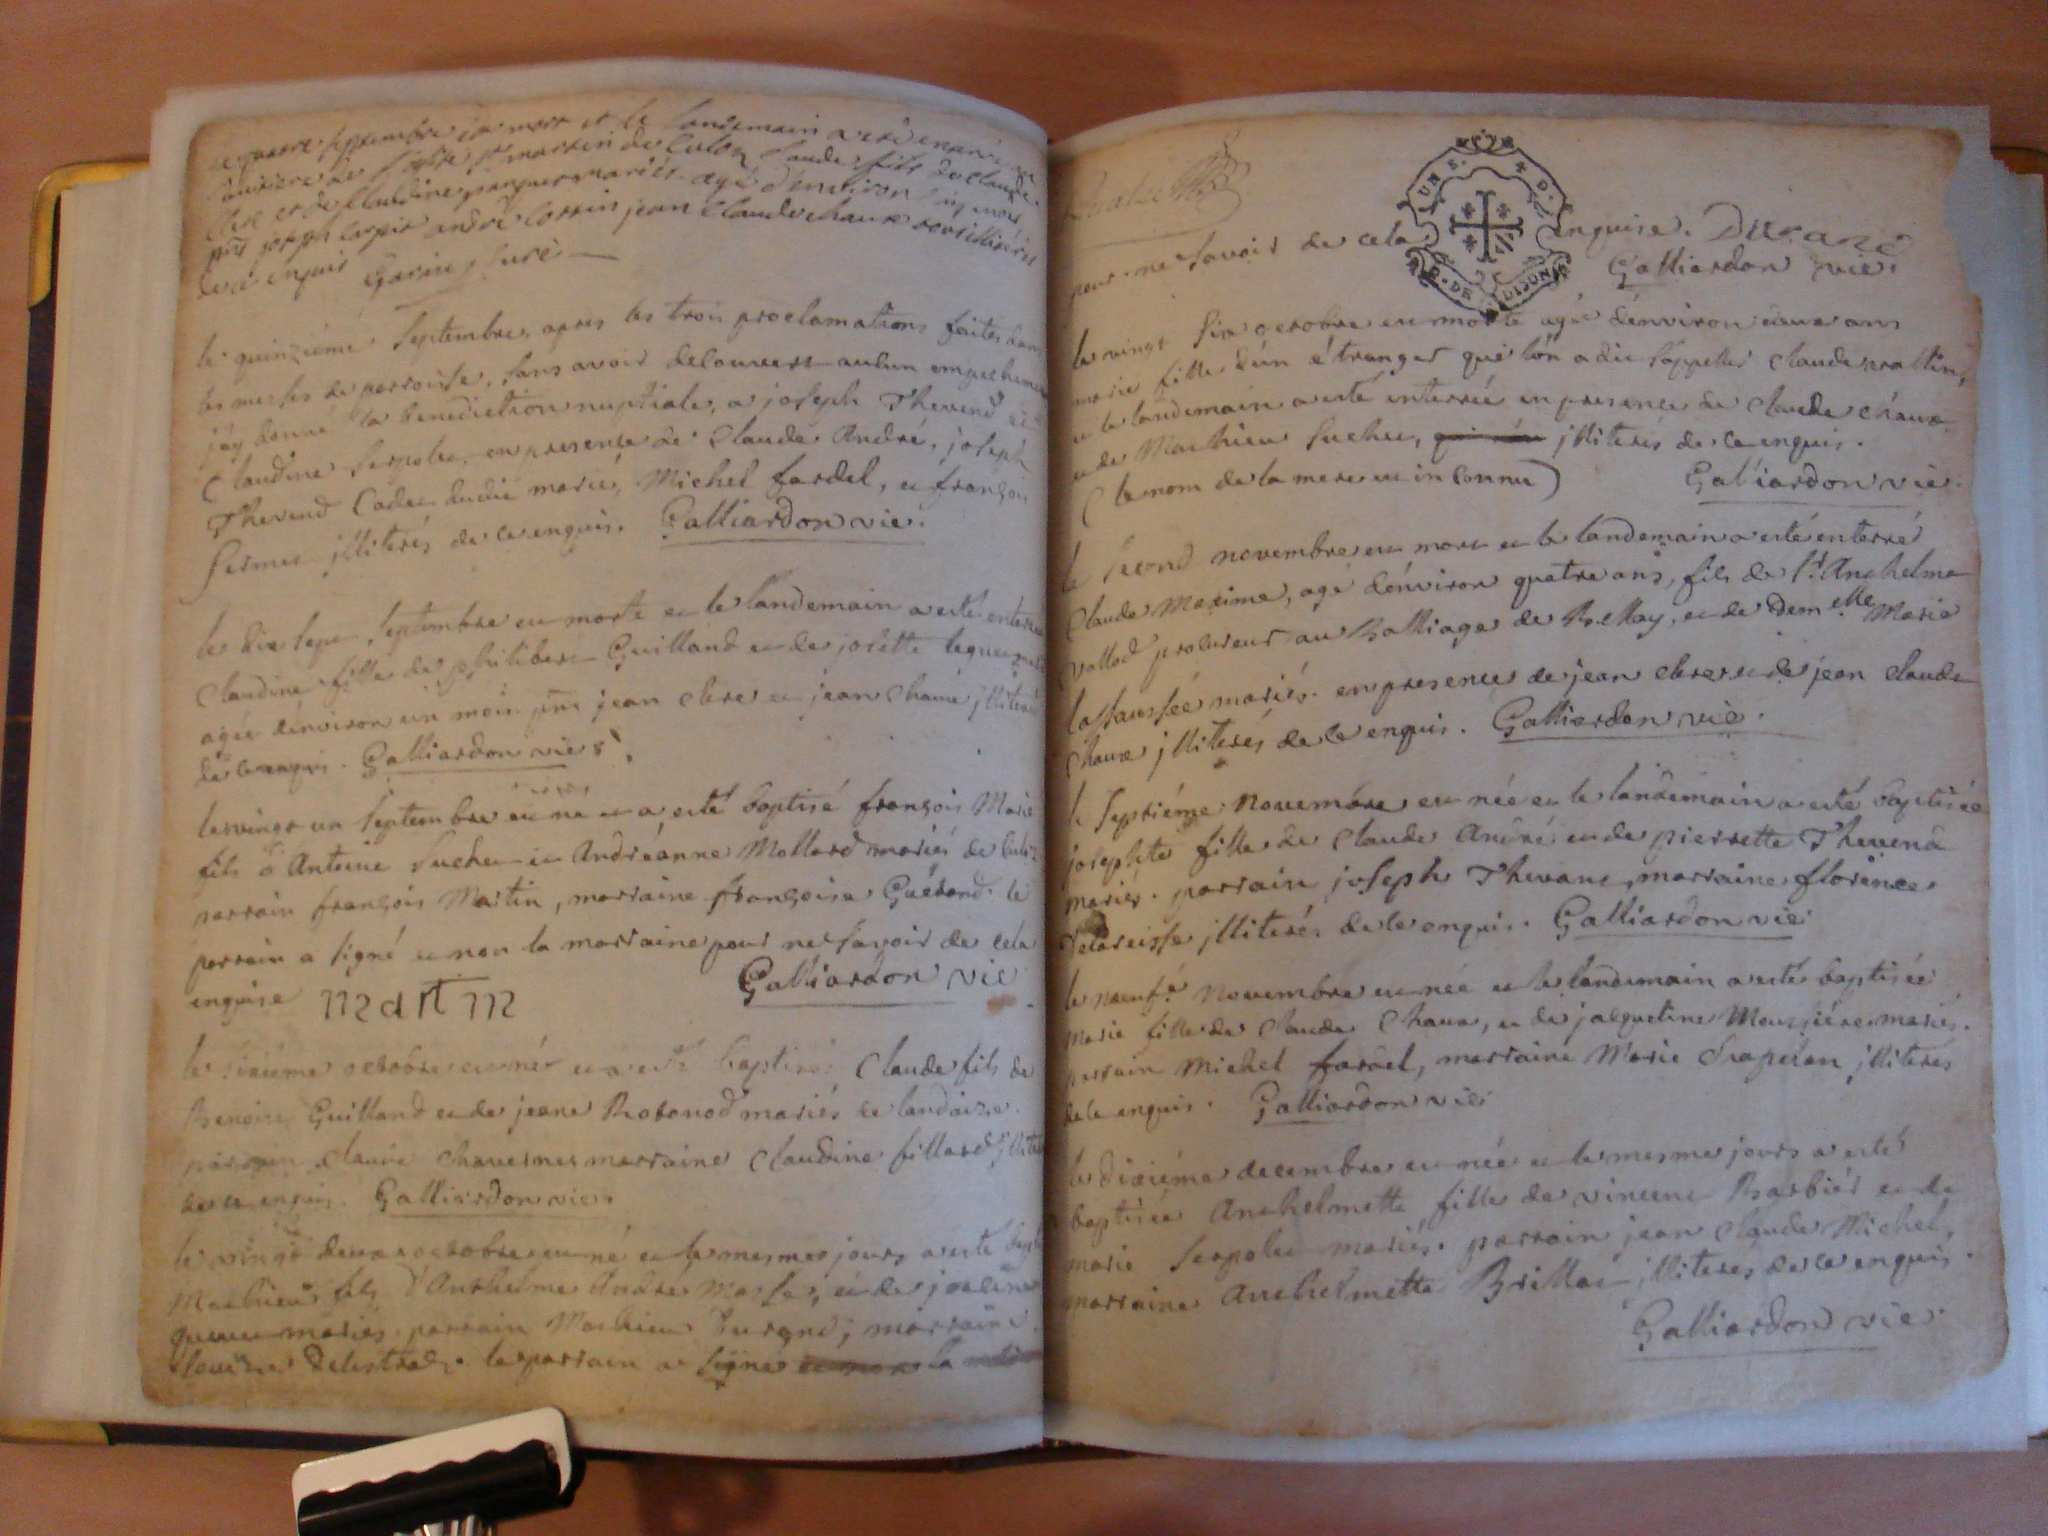 le quatre septembre est mort et le landemain a esté enterré au
cimitiere de l'église st martin de Culoz Claude fils de Claude
Clerc et de Claudine mariés agé d'environ six mois
pnt joseph carrier andré cossin jean Claude chaux touts illiterés
de ce enquis Garin Curé
le quinziéme Septembre, apres les trois proclamations faites dans
les messes de parroisse, sans avoir decouvert aulcun empechement
j'ay donné la benediction nuptiale, a joseph Thevend et
Claudine Serpolet, en presence de Claude André, joseph
Thevend Cadet dudit marié, Michel fardel, et françois
fermet jlliterés de ce enquis. Galliardon vic.
le dix sept Septembre est morte et le landemain a esté enterrée
Claudine fille de philibert Guilland et de josette
agée d'environ un mois pnt jean clerc et jean chaux jlliterés
de ce enquis. Galliardon vic
le vingt un Septembre est né et a esté baptisé françois Marie
fils d'Antoine Suchet et Andréanne Mollard mariés de Culoz
parrain françois Martin, marraine françoise Guérand. le
parrain a signé et non la marraine pour ne sçavoir de cela
enquise martin Galliardon vic
le sixiéme octobre est né et a esté baptisé Claude fils de
Benoist Guilland et de jeane Rosonod mariés de landaize.
parrain claude marraine Claudine fillard jlliterés
de ce enquis. Galliardon vic.
le vingt deux octobre est né et le mesme jours a esté baptisé
Mathieu fils d'Anthelme Andre Masse, et de
mariés. parrain Mathieu Durand; marraine
Delestraz. le parrain a signé et non la
pour ne savoir de cela enquise. Durand
UNS. D. G. DE DIJON
Galliardon vic.
le vingt six octobre est morte agé d'environ deux ans
marie fille d'ún étranger que l'on a dit s'appeller Claude
et le landemain a esté enterrée en presence de Claude chaux
et de Mathieu Suchet, jlliterés de ce enquis.
(le nom de la mere est inconnu) Galliardon vic.
le second novembre est mort et le landemain a esté enterré
Claude Maxime, agé d'environ quatre ans, fils de Sr Anthelme
Vallod procureur au Balliage de Bellay, et de Demelle Marie
Lassaussée mariés. en presence de jean clerc et de jean Claude
chaux jlliterés de ce enquis. Galliardon vic.
le septiéme Novembre est née et le landemain a esté baptisée
josephte fille de Claude André et de pierrette Thevend
mariés. parrain joseph Thevand, marraine florence
Delareisse jlliterés de ce enquis. Galliardon vic.
le neufé Novembre est née et le landemain a esté baptisée
Marie fille de Claude Chaux, et de jacquetine Moussiére mariés.
parrain Michel fardel, marraine Marie Serpolan jlliterés
de ce enquis. Galliardon vic.
le dixiéme decembre est née et le mesme jours a esté
baptisée Anthelmette fille de vincent Barbier et de
marie Serpolet mariés. parrain jean claude Michel,
marraine Anthelmette Brillat jlliterés de ce enquis.
Galliardon vic.